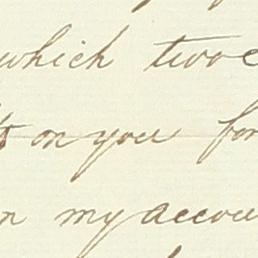 which two
on you for
my accou